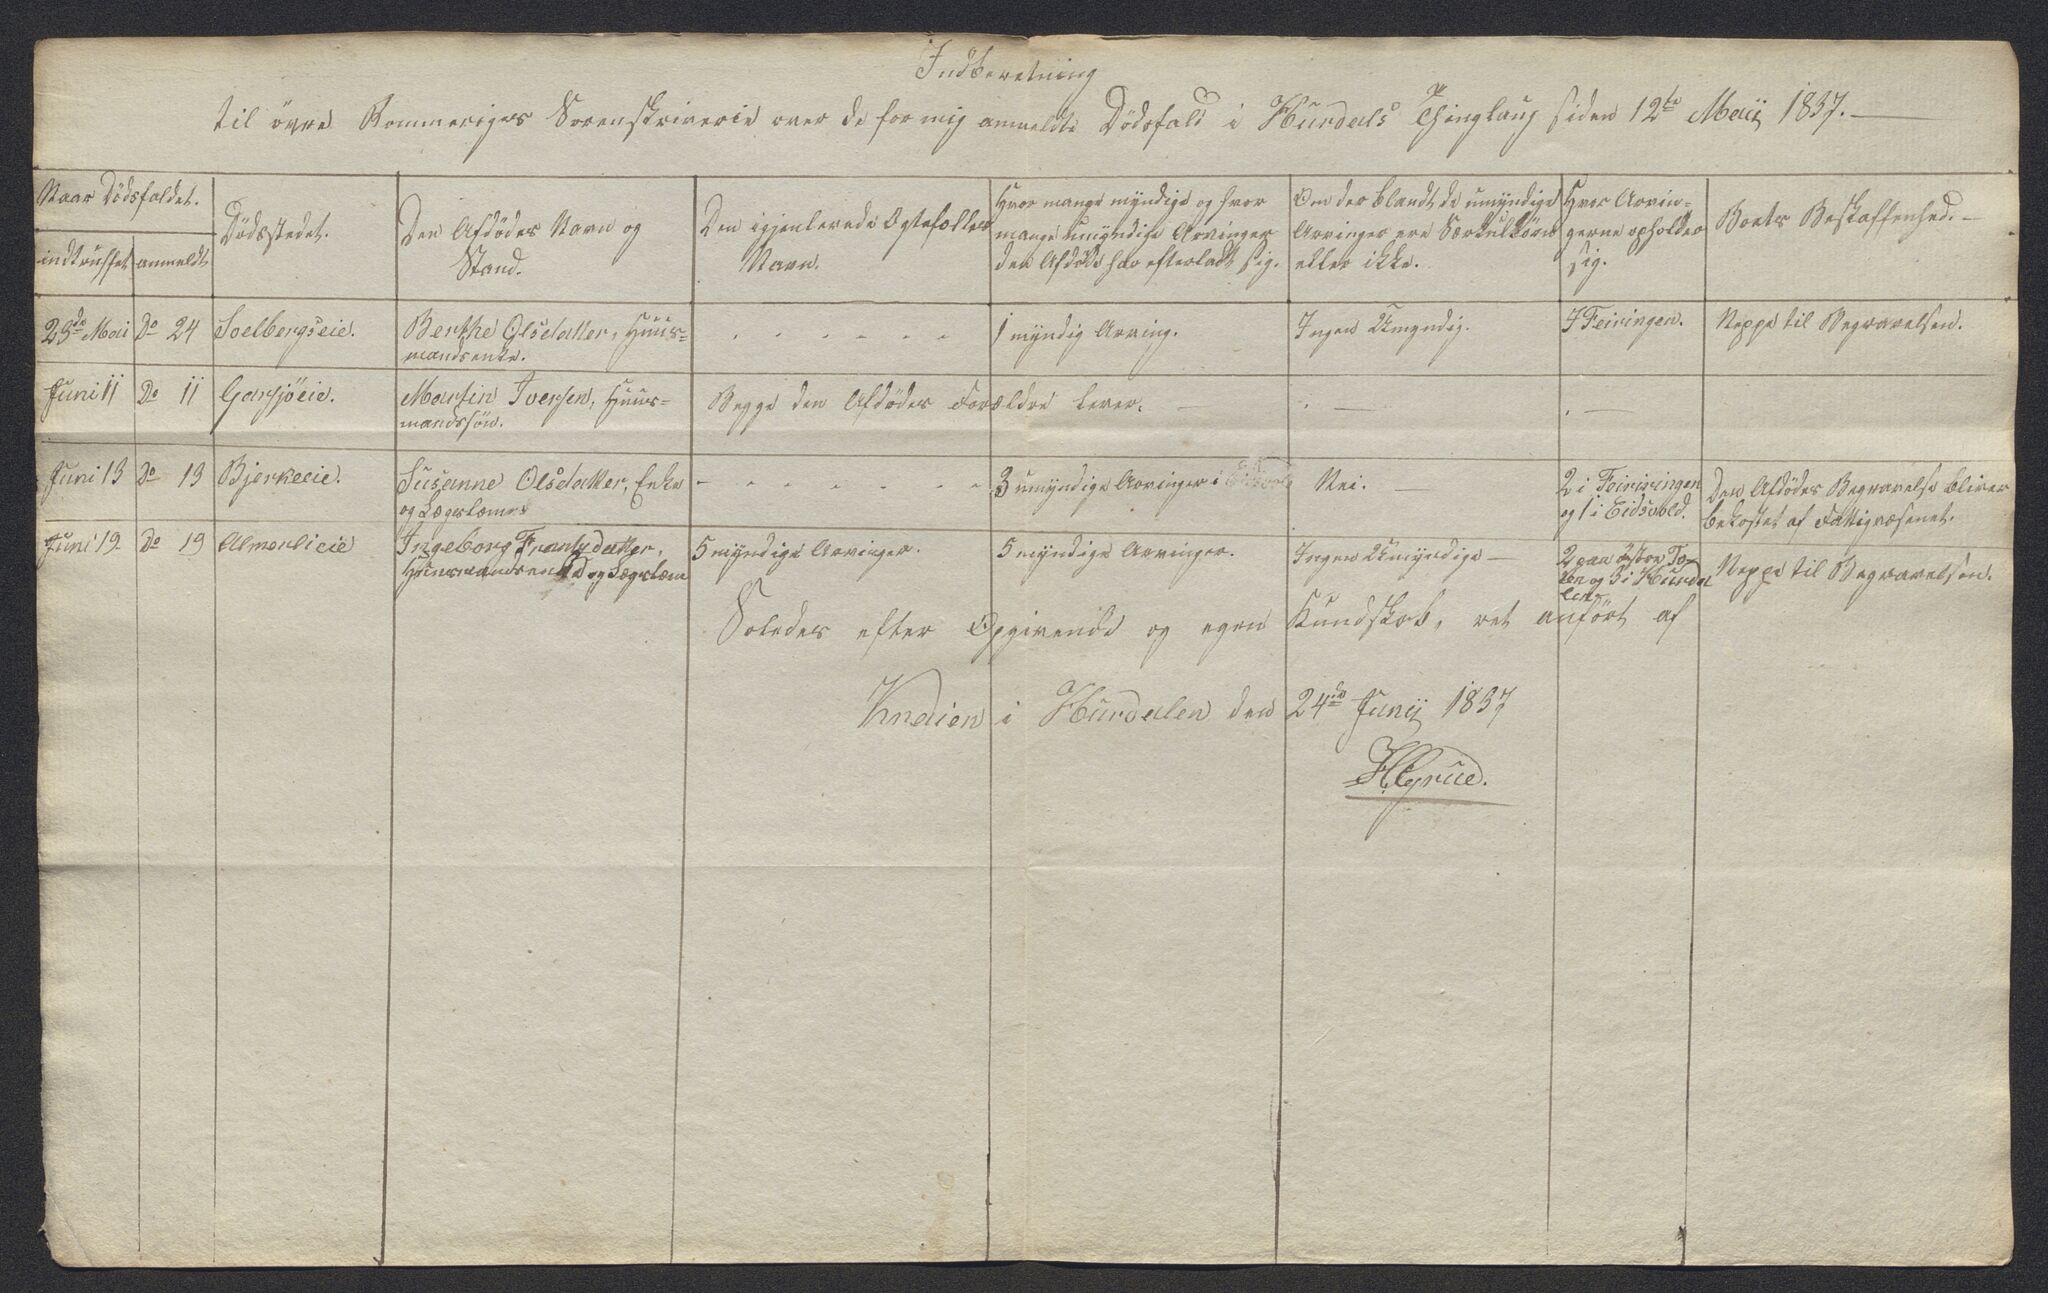 Indberetning
til övre Rommeriges Sorenskriverie over de for mig anmeldte Dödsfald i Hurdals Thinglaug siden 12te Maij 1837.
Naar Dödsfaldet.
indtruffet
anmeldt
Dödsstedet.
Den Afdödes Navn og
Stand.
Den igjenlevende Egtefælles
Navn.
Hvor mange myndige og hvor
mange umyndige Arvinger
den Afdöde har efterladt sig.
Om der blandt de umyndige
Arvinger ere Særkulbörn
eller ikke.
Hvor Arvin-
gerne opholder
sig.
Boets Beskaffenhed. -
23de Mai
Do 24
Soelbergseie.
Berthe Olsdatter, Huus-
mandsenke.
1 myndig Arving.
Ingen Umyndig.
I Feiringen.
Neppe til Begravelsen.
Juni 11
Do 11
Garsjöeie.
Martin Iversen, Huus-
mandssön.
Begge den Afdödes Forældre lever. -
Juni 13
Do 13
Bjerkeeie.
Susanne Olsdatter, Enke
og Lægslem
3 umyndige Arvinger i
Nei. -
2 i Feiriringen
og 1 i Eidsvold.
Den Afdödes Begravelse bliver
bekostet af Fattigvæsenet.
Juni 19
Do 19
Almenlieie
Ingeborg Frantzdatter,
Huusmandsenke og Lægslem
5 myndige Arvinger.
5 myndige Arvinger.
Ingen Umyndige -
2 paa östre To-
ten og 3 i Hurda-
len
Neppe til Begravelsen.
Soledes efter Opgivende og egen Kundskab, ret anfört af
Knaien i Hurdalen den 24de Junij 1837